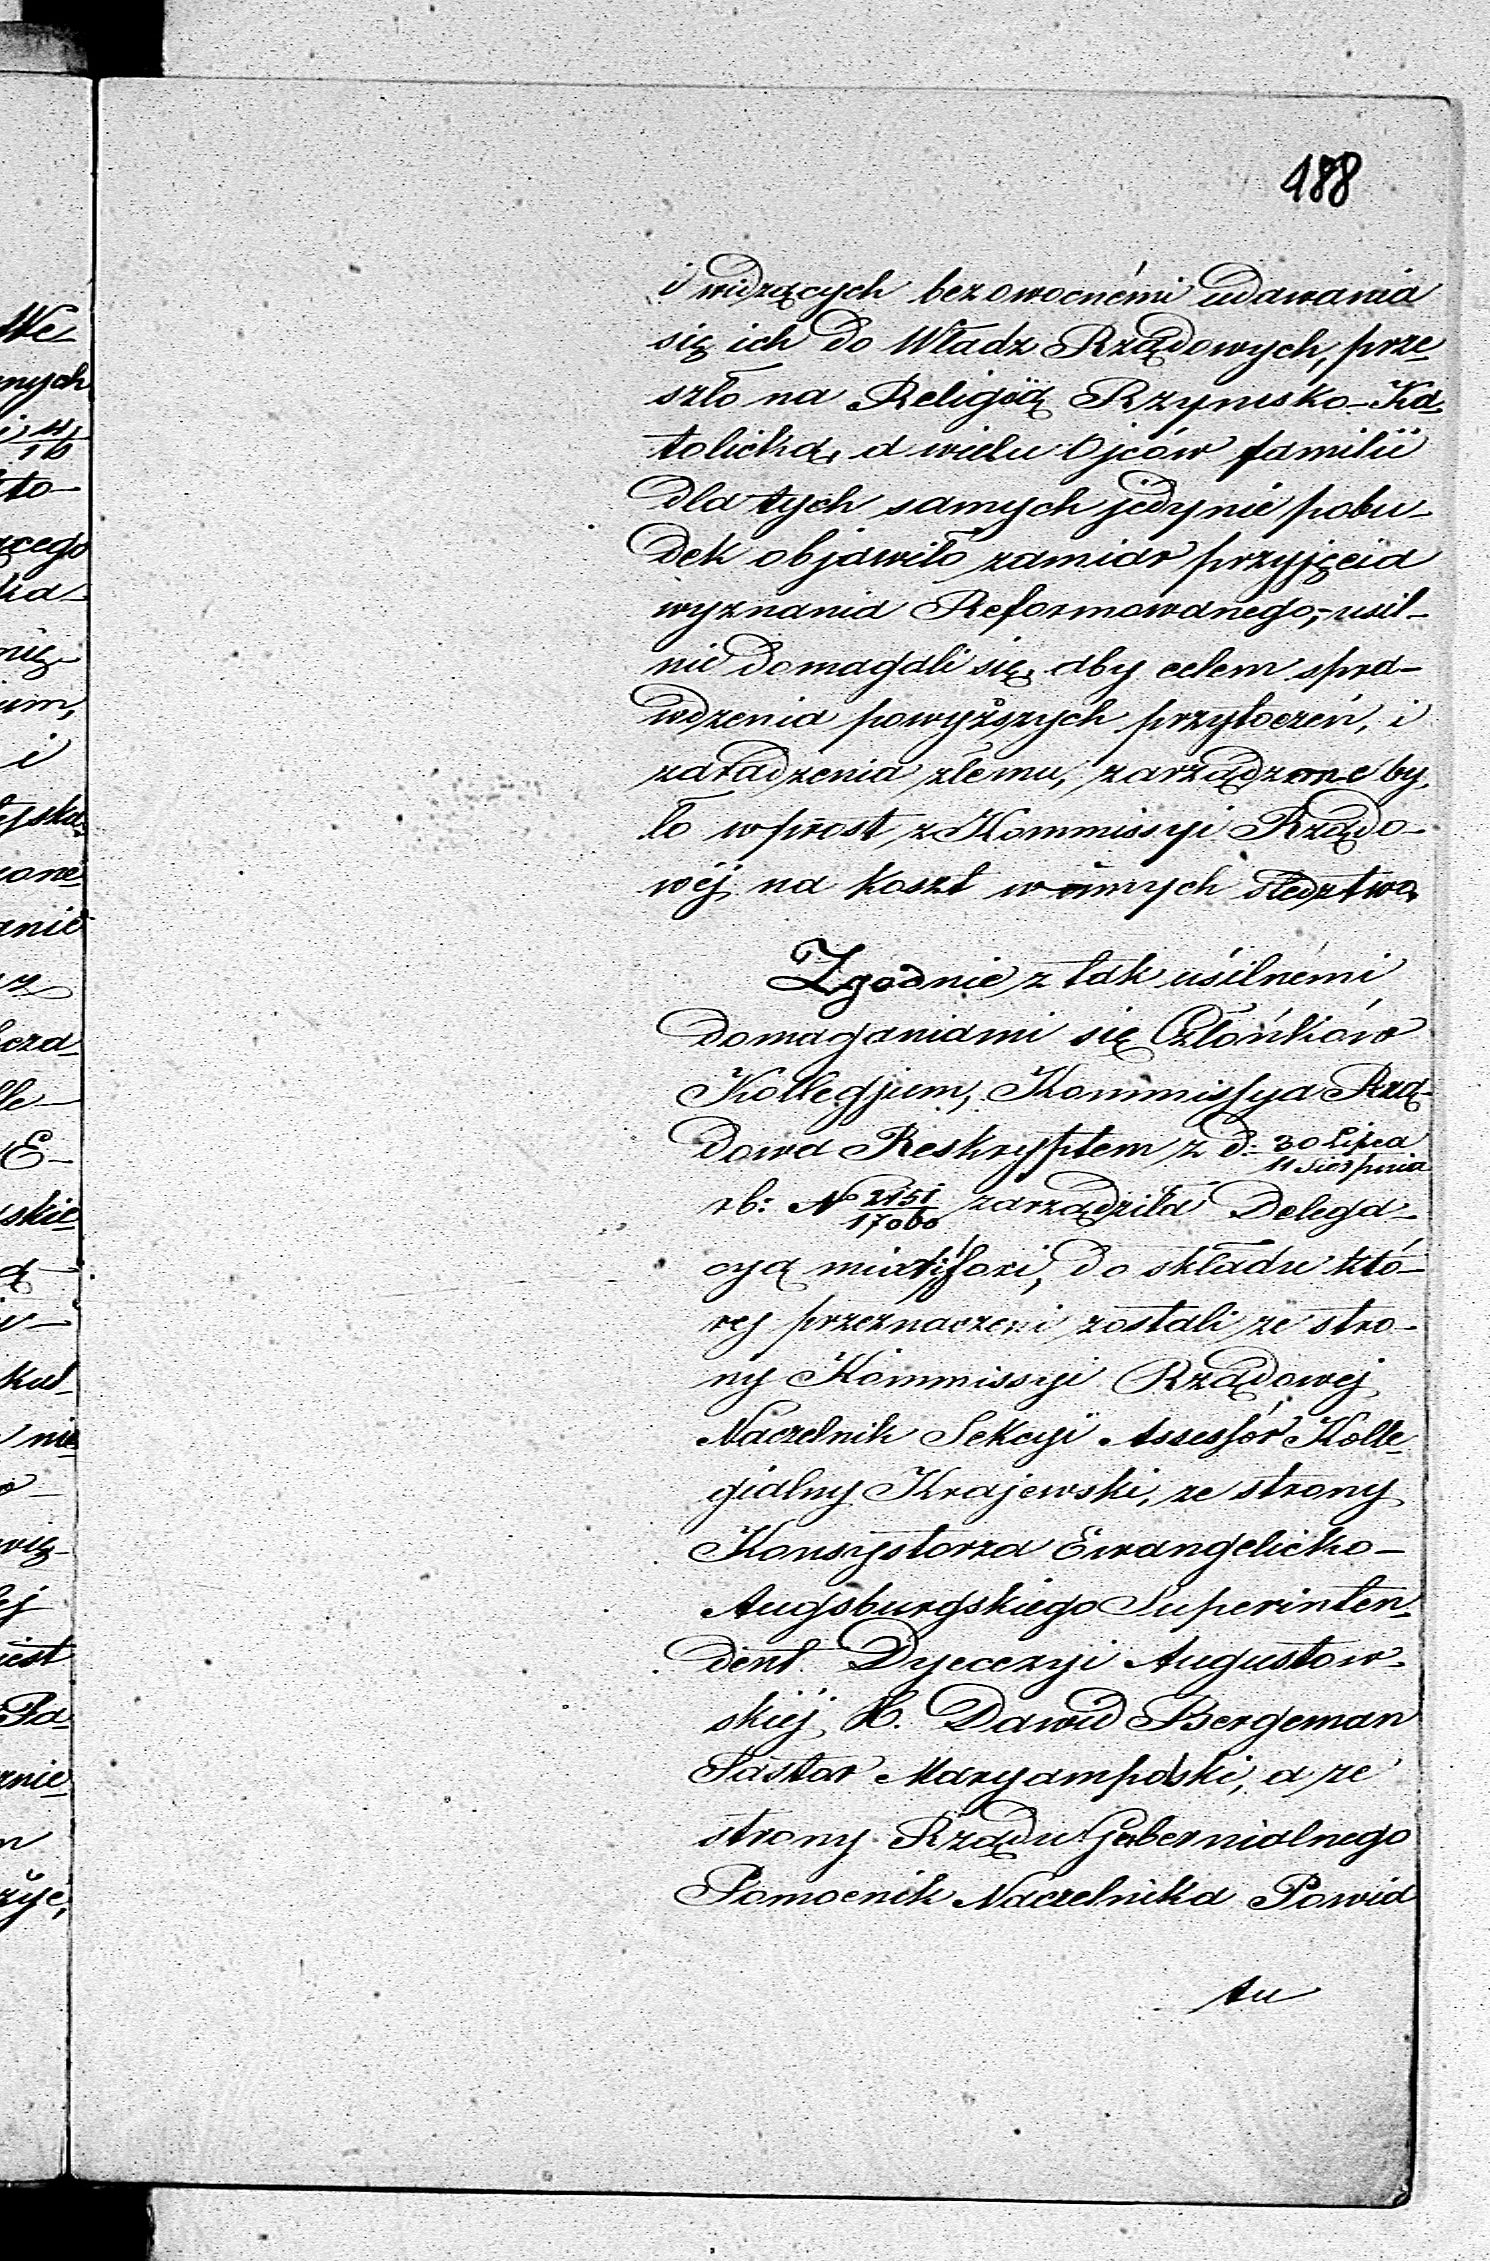 188
i widzących bezowocnémi udawania
się ich do Władz Rządowych, prze-
szło na Religią Rzymsko-Ka-
tolicką, a wielu Ojców familii
dla tych samych jedynie pobu-
dek objawiło zamiar przyjęcia
wyznania Reformowanego,- usil-
nie domagali się, aby celem spra-
wdzenia powyższych przytoczeń, i
zaradzenia złemu, zarządzone by-
ło wprost z Kommissyi Rządo-
wéj, na koszt winnych śledztwo,
Zgodnie z tak usilnémi
domaganiami się Członków
Kollegjum, Kommissya Rzą-
dowa Reskryptem z d. 30 Lipca
11 Sierpnia
rb: N 2151/17060 zarządziła Delega-
cyą mixti fori, do składu któ-
rej przeznaczeni zostali ze stro-
ny Kommissyi Rządowej
Naczelnik Sekcyi Assessor Kolle-
gialny Krajewski, ze strony
Konsystorza Ewangelicko-
Augsburgskiego Superinten-
dent Dyecezyi Augustow-
skiéj, X. Dawid Bergeman
Pastor Maryampolski, a ze
strony Rządu Gubernialnego
Pomocnik Naczelnika Powia
tu
We
nych
to-
ącego
ka-
nię
ium,
i
anie
cza-
lle-
E-
skie
ą-
kul-
nie
ej
jest
Pa-
znie